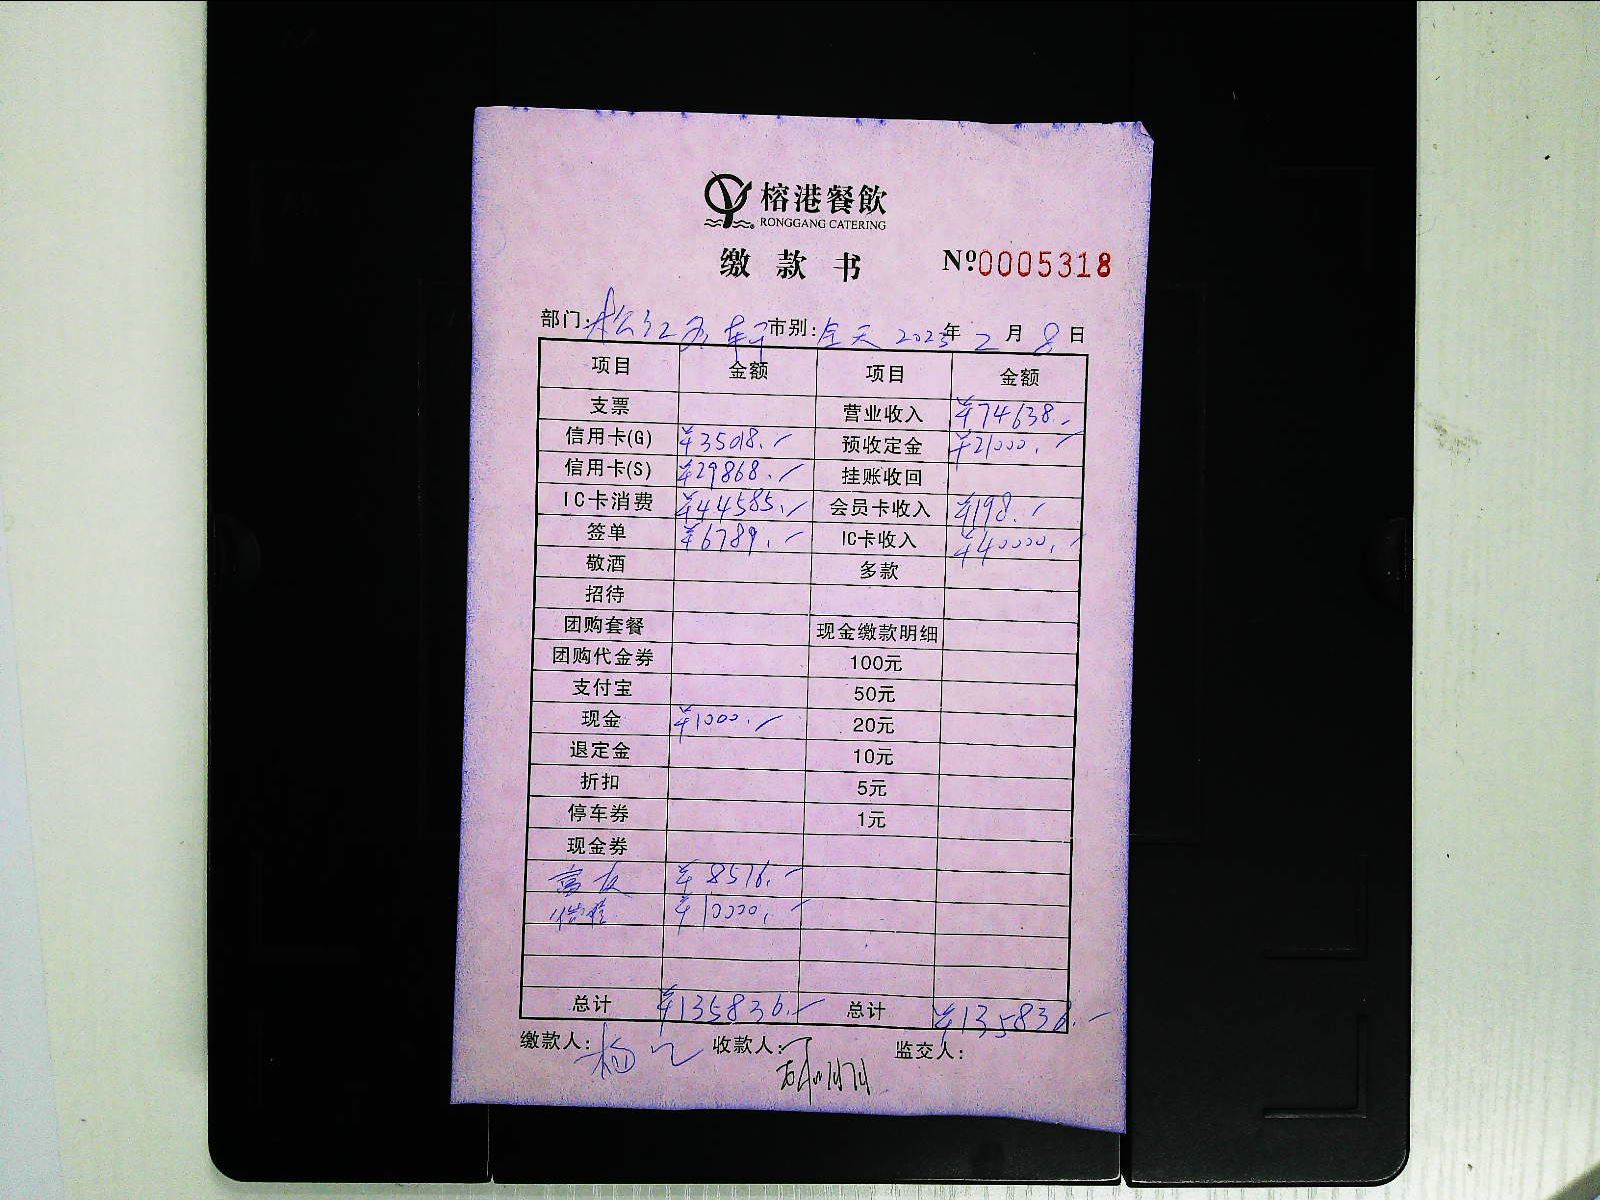 榕港餐飲
RONGGANG CATERING
缴款书 Nº0005318
部门: 市别:全天 2025年2月8日
项目 金额 项目 金额
支票 营业收入 ¥74638.-
信用卡(G) ¥35018.- 预收定金 ¥21000.-
信用卡(S) ¥29868.- 挂账收回
IC卡消费 ¥44585.- 会员卡收入 ¥198.-
签单 ¥6789.- IC卡收入 ¥40000.-
敬酒 多款
招待
团购套餐 现金缴款明细
团购代金券 100元
支付宝 50元
现金 ¥1000.- 20元
退定金 10元
折扣 5元
停车券 1元
现金券
富友 ¥8576.-
¥10000.-
总计 ¥135836.- 总计 ¥135836.-
缴款人: 收款人: 监交人: